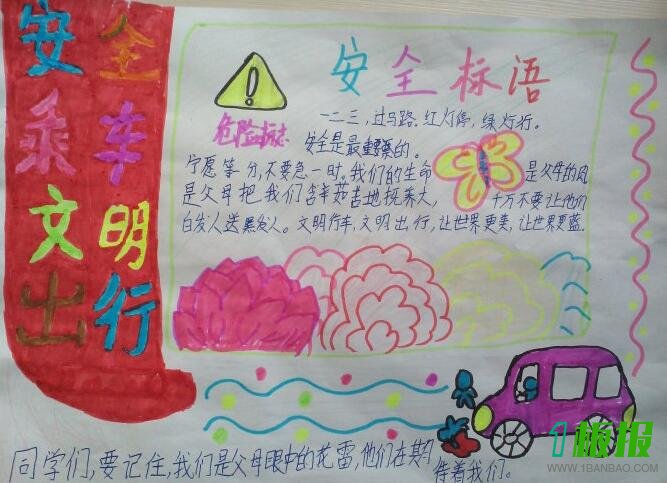 安全
乘车
文明
出行
安全标语
危险标志
一二三,过马路.红灯停,绿灯行。
安全是最重要的。
宁愿等分,不要急一时。我们的生命
是父母的
是父母把我们含辛茹苦地抚养大,
千万不要让他们
白发人送黑发人。文明行车,文明出,行,让世界更美,让世界更蓝.
同学们,要记住,我们是父母眼中的花雷,他们在期
待着我们。
1板报
WWW.1BANBAO.COM